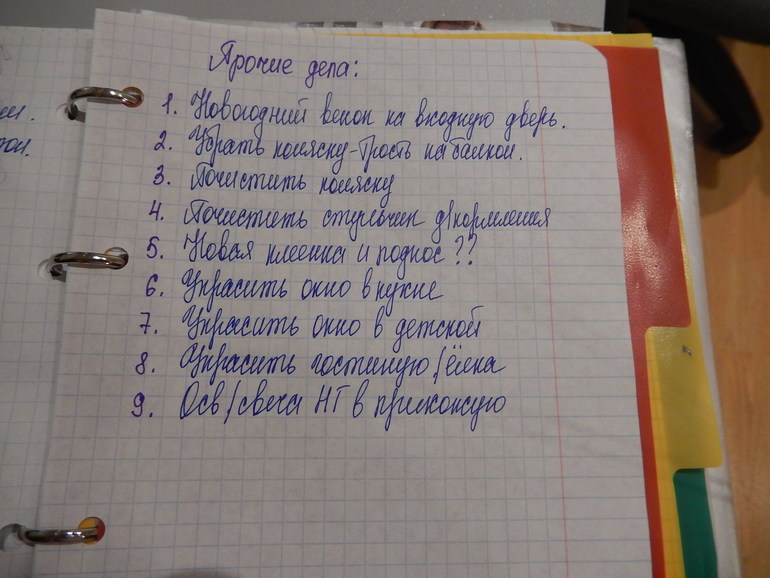 Прочие дела:
1. Новогодний венок на входную дверь.
2. Убрать коляску-трость на балкон.
3. Почистить коляску
4. Почистить стульчик д/кормления
5. Новая клеенка и поднос??
6. Украсить окно в кухне
7. Украсить окно в детской
8. Украсить гостиную/ёлка
9. Осв/свеча НГ в прихожую